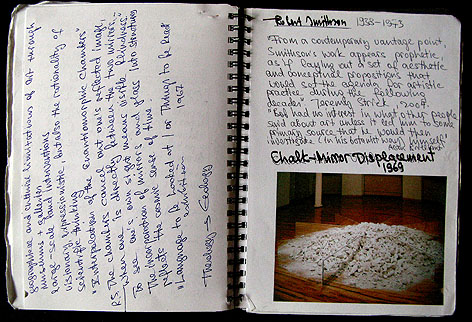 geographical and cultural limitations of art through
museums + galleries
large-scale land interventions
visionary expressionistic but also the rationality of
scientific thinking
"Interpolation of the enantiomorphic Chambers"
RS The chambers cancel out one's reflected image,
when one is directly between the two mirrors.
To see one's own sight means visible blindness.
The incorporation of mirrors and glass into structures
reflects the cosmic sense of time.
"Language to be Looked at / or Things to be Read"
exhibition 1967
Theology → Geology
Robert Smithson 1938-1973
"From a contemporary vantage point,
Smithson's work appears prophetic,
as if laying out a set of aesthetic
and conceptual propositions that
would set the agenda for artistic
practice during the following
decades" Jeremy Strick, 2004.
"Bob had no interest in what other people
said about art unless it led him to some
primary source that he would then
investigate (in his own way) himself"
Chalk-Mirror Displacement
1969